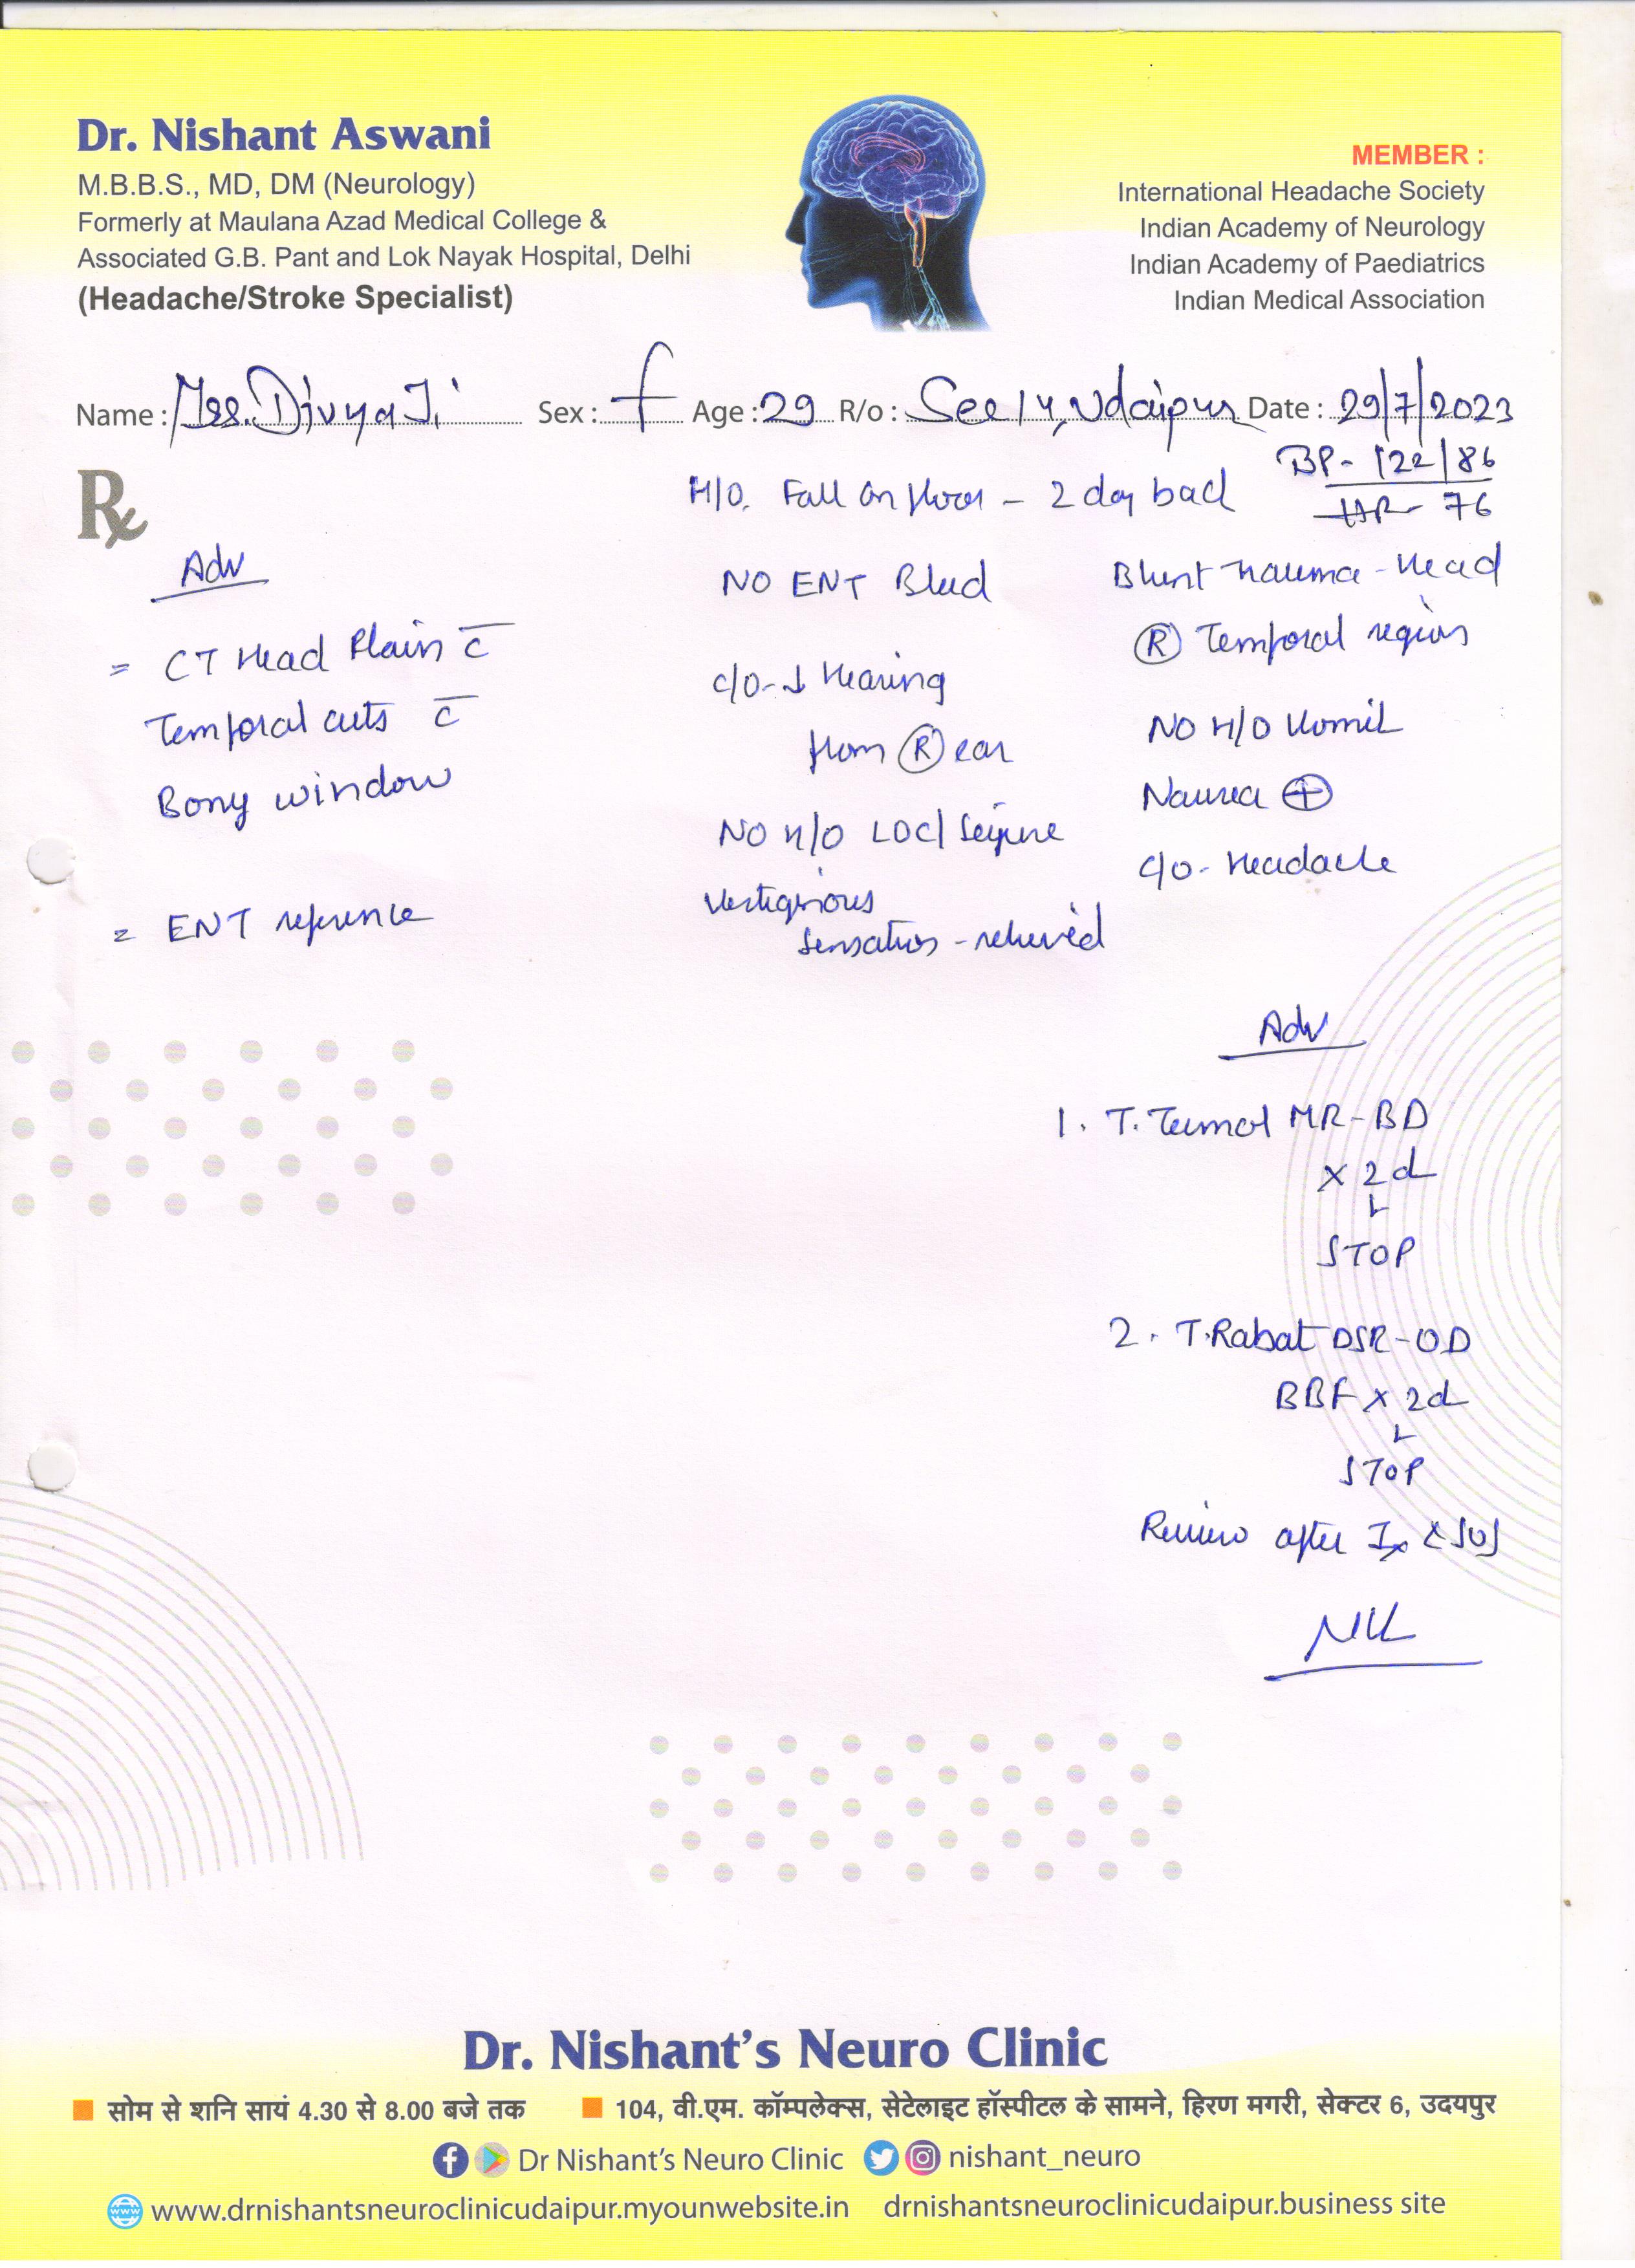 Dr. Nishant Aswani
M.B.B.S., MD, DM (Neurology)
Formerly at Maulana Azad Medical College &
Associated G.B. Pant and Lok Nayak Hospital, Delhi
(Headache/Stroke Specialist)
MEMBER :
International Headache Society
Indian Academy of Neurology
Indian Academy of Paediatrics
Indian Medical Association
Name : Divya Ji Sex : F Age : 29 R/o : Sec 14, Udaipur Date : 29/7/2023
BP- 122/86
HR- 76
Rx
H/O. Fall on floor - 2 day back
Blunt trauma - Head
(R) Temporal region
NO ENT Bleed
C/O- ↓ Hearing
from (R) ear
NO H/O Vomit
Nausea (+)
C/O- Headache
NO H/O LOC/ Seizure
Vertiginous
Sensation - relieved
Adv
= CT Head Plain c̄
Temporal cuts c̄
Bony window
= ENT reference
Adv
1. T. MR-BD
x 2d
STOP
2. T. DSR-OD
BBF x 2d
STOP
Review after Ix & SOS
Dr. Nishant's Neuro Clinic
सोम से शनि सायं 4.30 से 8.00 बजे तक
104, वी.एम. कॉम्पलेक्स, सेटेलाइट हॉस्पीटल के सामने, हिरण मगरी, सेक्टर 6, उदयपुर
Dr Nishant's Neuro Clinic nishant_neuro
www.drnishantsneuroclinicudaipur.myounwebsite.in drnishantsneuroclinicudaipur.business site